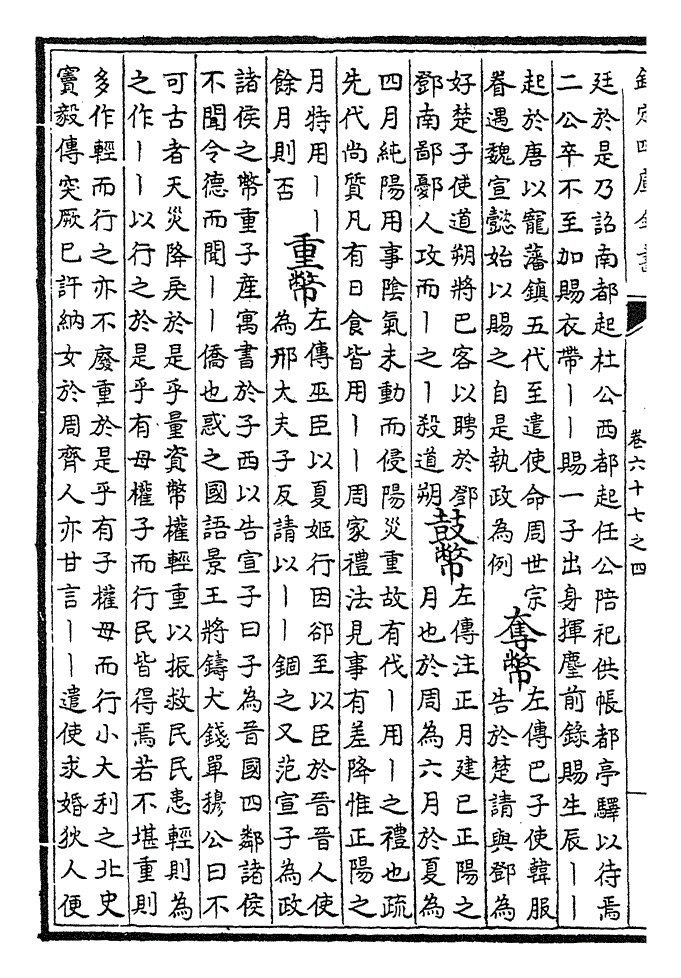 欽定四庫全書
卷六十七之四
廷於是乃詔南都起杜公西都起任公陪祀供帳都亭驛以待焉
二公卒不至加賜衣帶丨丨賜一子出身揮麈前錄賜生辰丨丨
起於唐以寵藩鎮五代至遣使命周世宗
眷遇魏宣懿始以賜之自是執政為例
奪幣
左傳巴子使韓服
告於楚請與鄧為
好楚子使道朔將巴客以聘於鄧
鄧南鄙鄾人攻而丨之丨殺道朔
鼓幣
左傳注正月建巳正陽之
月也於周為六月於夏為
四月純陽用事陰氣未動而侵陽災重故有伐丨用丨之禮也疏
先代尚質凡有日食皆用丨丨周家禮法見事有差降惟正陽之
月特用丨丨
餘月則否
重幣
左傳巫臣以夏姬行因郤至以臣於晉晉人使
為邢大夫子反請以丨丨錮之又范宣子為政
諸侯之幣重子產寓書於子西以告宣子曰子為晉國四鄰諸侯
不聞令德而聞丨丨僑也惑之國語景王將鑄大錢單穆公曰不
可古者天災降戾於是乎量資幣權輕重以振救民民患輕則為
之作丨丨以行之於是乎有母權子而行民皆得焉若不堪重則
多作輕而行之亦不廢重於是乎有子權母而行小大利之北史
竇毅傳突厥巳許納女於周齊人亦甘言丨丨遣使求婚狄人便